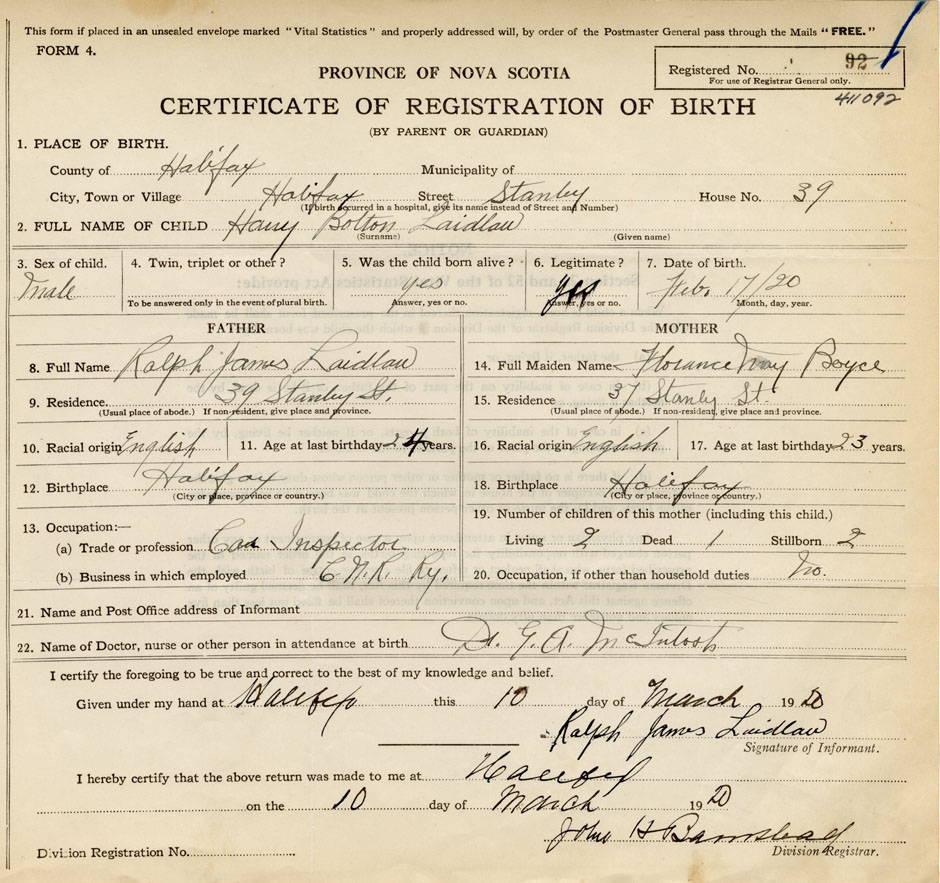 This form if placed in an unsealed envelope marked "Vital Statistics" and properly addressed will, by order of the Postmaster General pass through the Mails "FREE."
FORM 4.
Registered No. 92
For use of Registrar General only.
411092
PROVINCE OF NOVA SCOTIA
CERTIFICATE OF REGISTRATION OF BIRTH
(BY PARENT OR GUARDIAN)
1. PLACE OF BIRTH.
County of Halifax Municipality of
City, Town or Village Halifax Street Stanley House No. 39
(If birth occurred in a hospital, give its name instead of Street and Number)
2. FULL NAME OF CHILD Harry Bolton Laidlaw
(Surname) (Given name)
3. Sex of child. 4. Twin, triplet or other? 5. Was the child born alive? 6. Legitimate? 7. Date of birth.
Male yes yes Feb. 17/20
To be answered only in the event of plural birth. Answer, yes or no. Answer, yes or no. Month, day, year.
FATHER
8. Full Name Ralph James Laidlaw
9. Residence. 39 Stanley St.
(Usual place of abode.) If non-resident, give place and province.
10. Racial origin English 11. Age at last birthday 24 years.
12. Birthplace Halifax
(City or place, province or country.)
13. Occupation:—
(a) Trade or profession Car Inspector
(b) Business in which employed C.N.R. Ry.
MOTHER
14. Full Maiden Name Florance May Boyce
15. Residence 37 Stanley St.
(Usual place of abode.) If non-resident, give place and province.
16. Racial origin English 17. Age at last birthday 23 years.
18. Birthplace Halifax
(City or place, province or country.)
19. Number of children of this mother (including this child.)
Living 2 Dead 1 Stillborn 2
20. Occupation, if other than household duties No.
21. Name and Post Office address of Informant
22. Name of Doctor, nurse or other person in attendance at birth Dr. G. A. McIntosh
I certify the foregoing to be true and correct to the best of my knowledge and belief.
Given under my hand at Halifax this 10 day of March 1920
Ralph James Laidlaw
Signature of Informant.
I hereby certify that the above return was made to me at Halifax
on the 10 day of March 1920
John H Barnstead
Division Registrar.
Division Registration No.